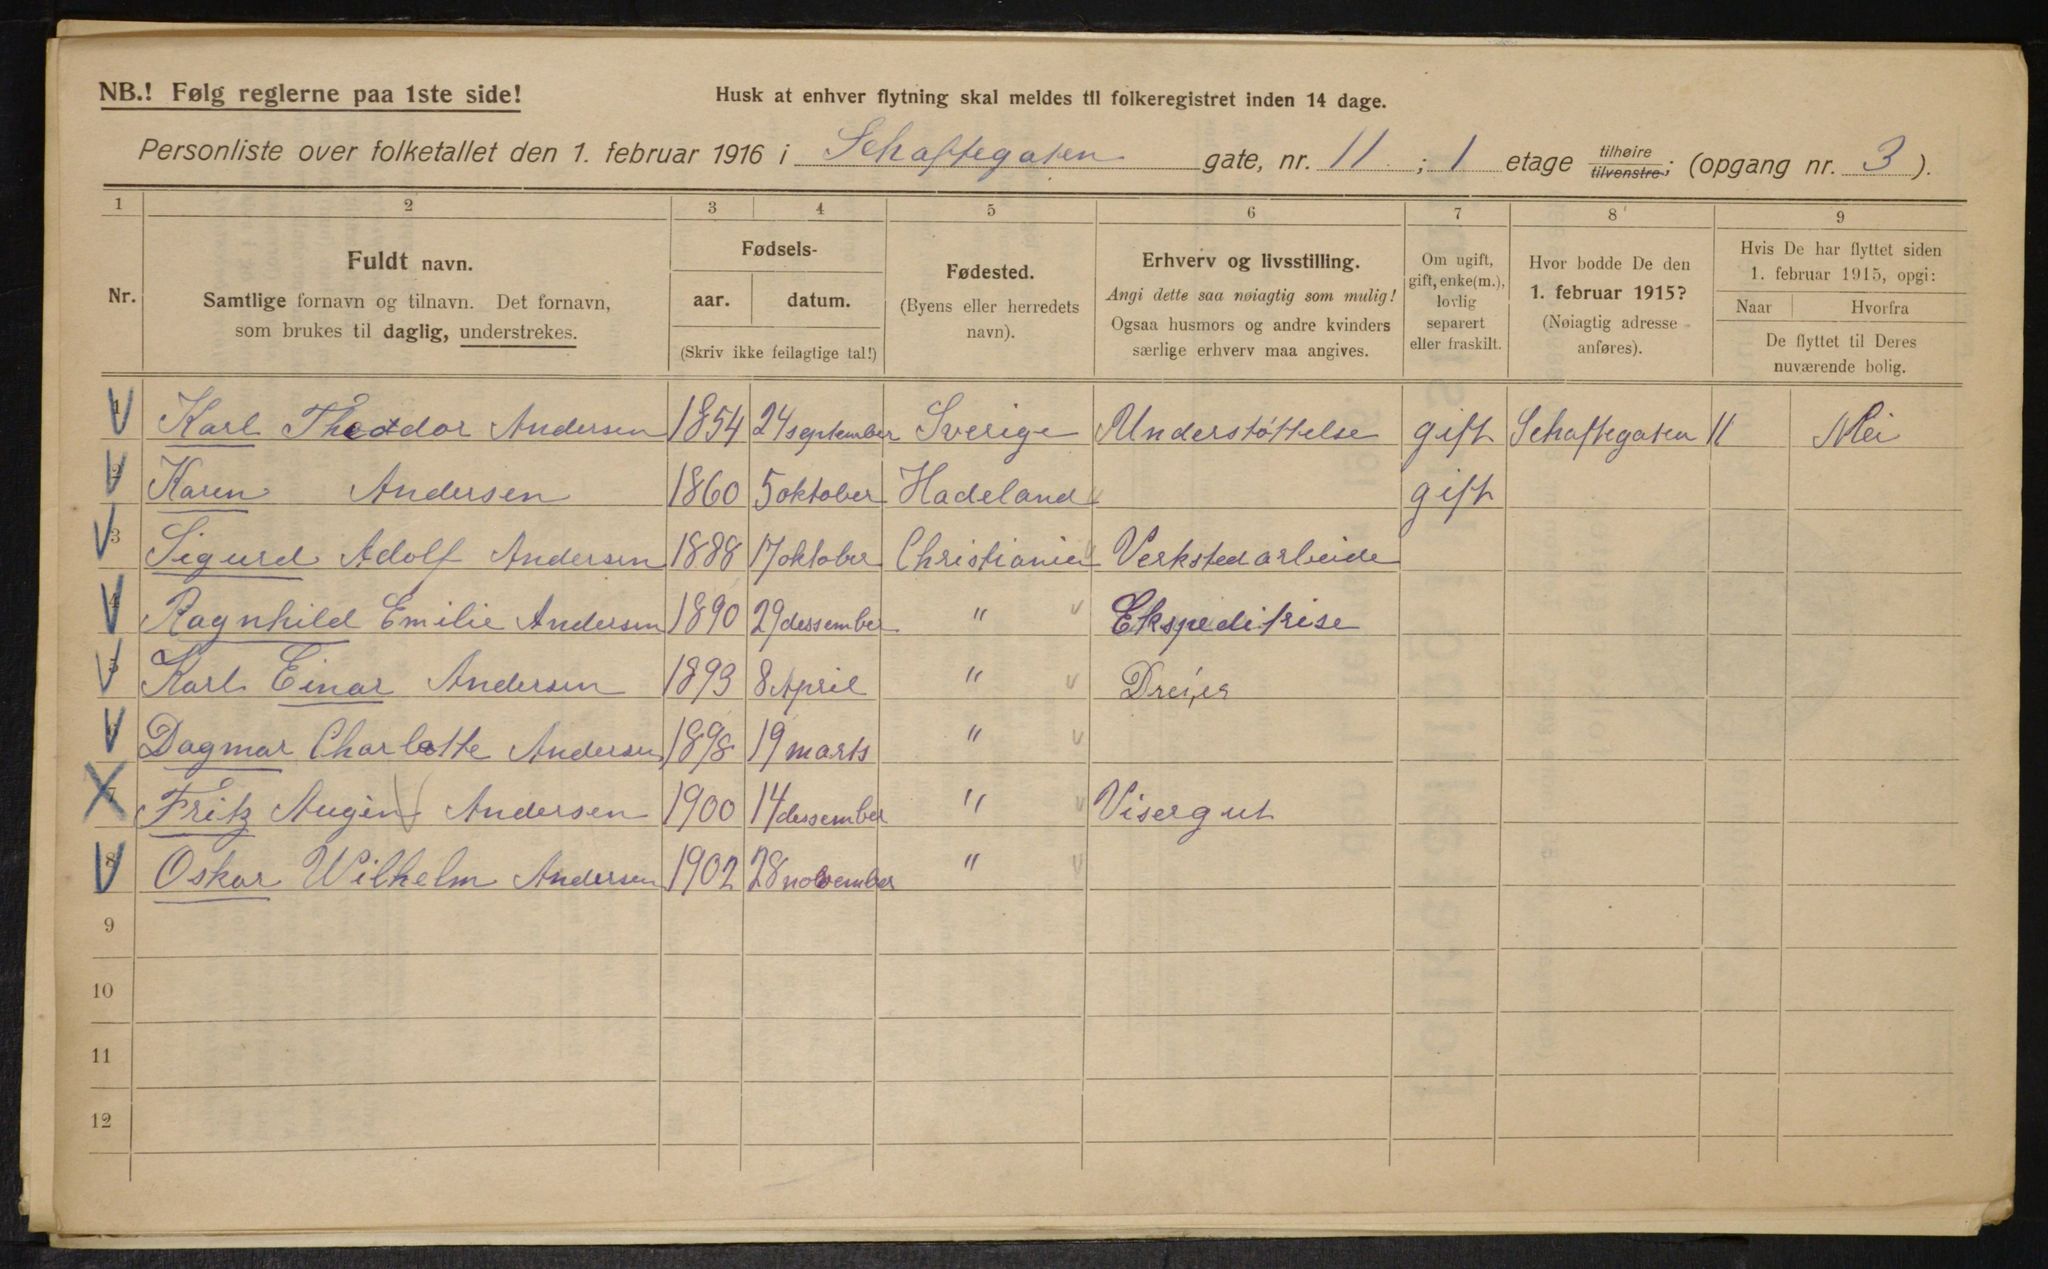 NB.! Følg reglerne paa 1ste side!
Husk at enhver flytning skal meldes til folkeregistret inden 14 dage.
Personliste over folketallet den 1. februar 1916 i Schaftegaten gate, nr. 11 ; 1 etage tilhøire tilvenstre; (opgang nr. 3 ).
1 2 3 4 5 6 7 8 9
Nr.
Fuldt navn.
Samtlige fornavn og tilnavn. Det fornavn,
som brukes til daglig, understrekes.
Fødsels-
aar. datum.
(Skriv ikke feilagtige tal!)
Fødested.
(Byens eller herredets
navn).
Erhverv og livsstilling.
Angi dette saa nøiagtig som mulig!
Ogsaa husmors og andre kvinders
særlige erhverv maa angives.
Om ugift,
gift, enke(m.),
lovlig
separert
eller fraskilt.
Hvor bodde De den
1. februar 1915?
(Nøiagtig adresse
anføres).
Hvis De har flyttet siden
1. februar 1915, opgi:
Naar Hvorfra
De flyttet til Deres
nuværende bolig.
1 Karl Theodor Andersen 1854 24 september Sverige Understøttelse gift Schaftegaten 11 Nei
2 Karen Andersen 1860 5 oktober Hadeland gift
3 Sigurd Adolf Andersen 1888 17 oktober Christiania Verkstedarbeide
4 Ragnhild Emilie Andersen 1890 29 dessember " Ekspeditrise
5 Karl Einar Andersen 1893 8 April " Dreier
6 Dagmar Charlotte Andersen 1898 19 marts "
7 Fritz Augin Andersen 1900 14 dessember " Visergut
8 Oskar Wilhelm Andersen 1902 28 november "
9
10
11
12